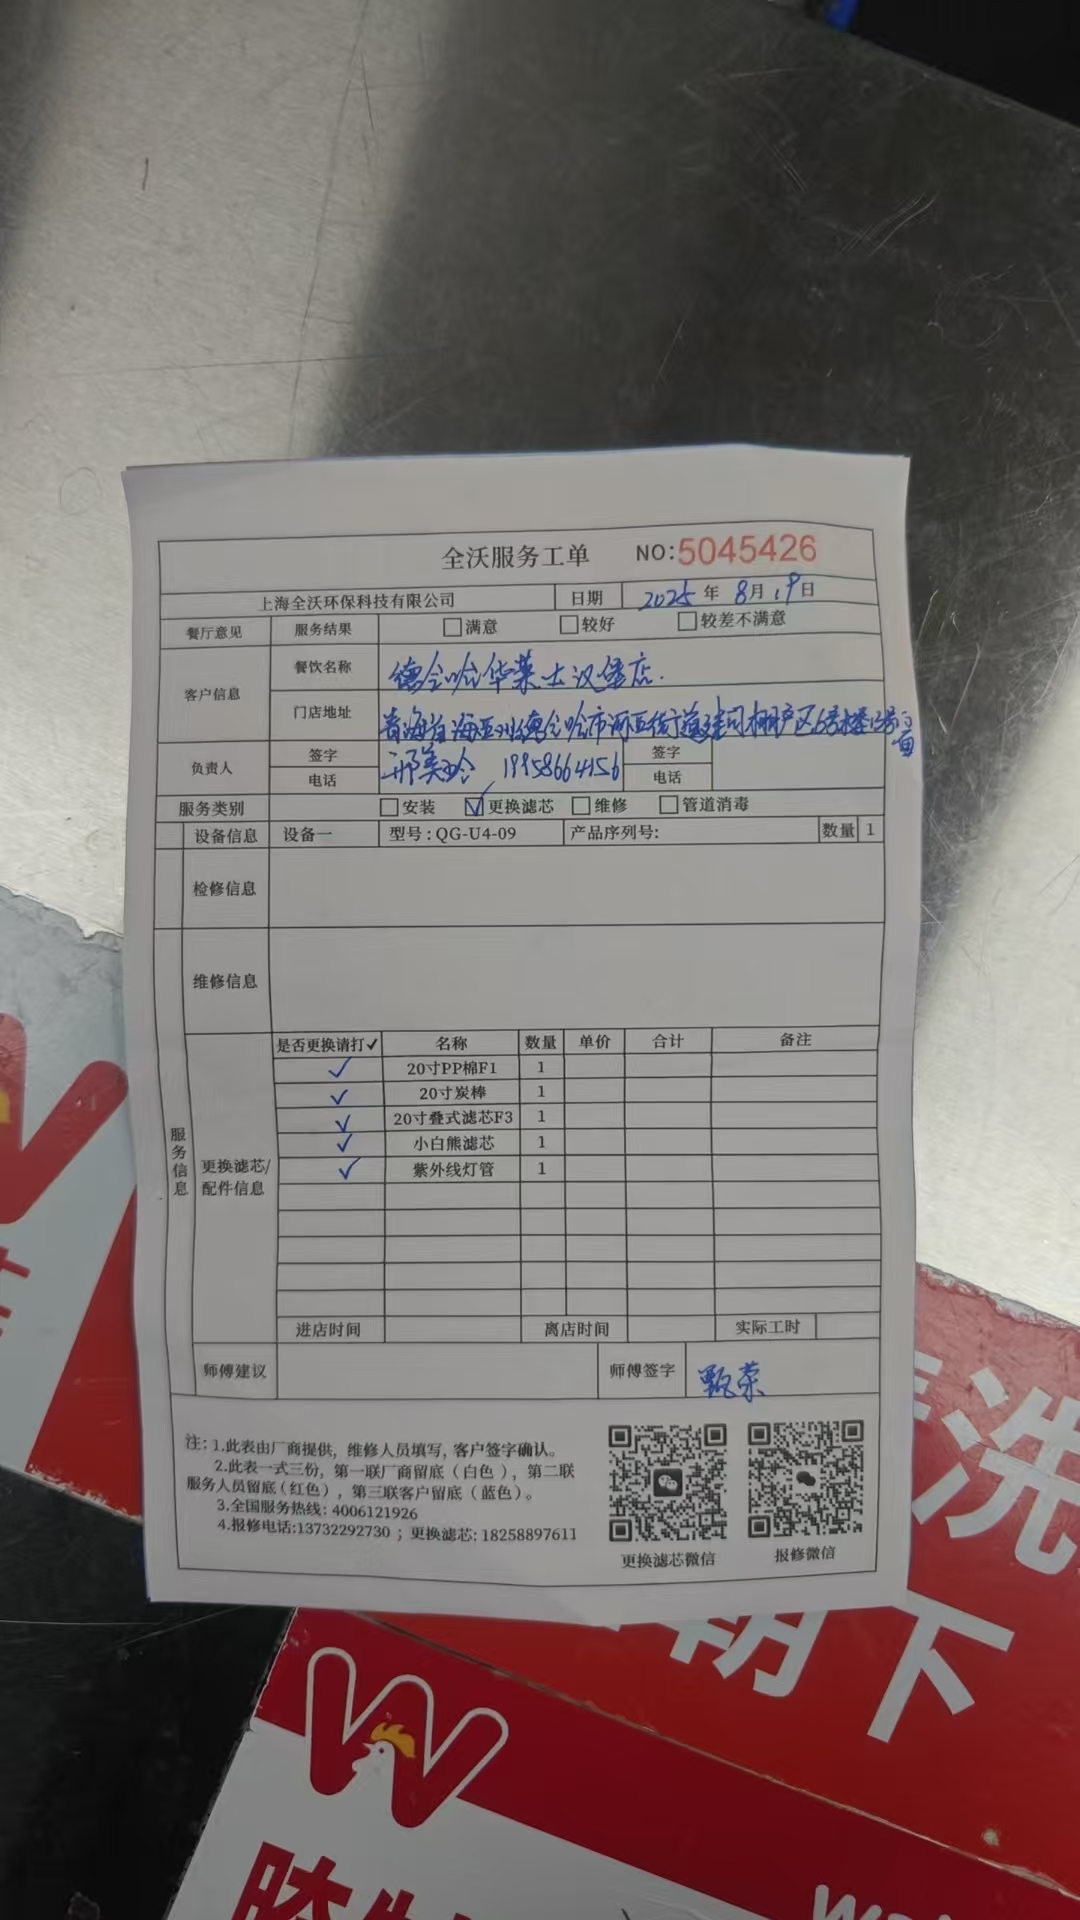 全沃服务工单 NO:5045426
上海全沃环保科技有限公司 日期 2025年8月19日
餐厅意见 服务结果 满意 较好 较差不满意
客户信息 餐饮名称 德令哈华莱士汉堡店.
门店地址 青海省海西州德令哈市河西街道建司棚户区6号楼13号商
负责人 签字 邢美玲 19958664156 签字
电话 电话
服务类别 安装 更换滤芯 维修 管道消毒
设备信息 设备一 型号:QG-U4-09 产品序列号: 数量 1
检修信息
维修信息
服务信息
更换滤芯/配件信息
是否更换请打✓ 名称 数量 单价 合计 备注
✓ 20寸PP棉F1 1
✓ 20寸炭棒 1
✓ 20寸叠式滤芯F3 1
✓ 小白熊滤芯 1
✓ 紫外线灯管 1
进店时间 离店时间 实际工时
师傅建议 师傅签字 甄荣
注:1.此表由厂商提供, 维修人员填写, 客户签字确认。
2.此表一式三份, 第一联厂商留底(白色), 第二联
服务人员留底(红色), 第三联客户留底(蓝色)。
3.全国服务热线: 4006121926
4.报修电话:13732292730 ; 更换滤芯: 18258897611
更换滤芯微信 报修微信
洗
朝下